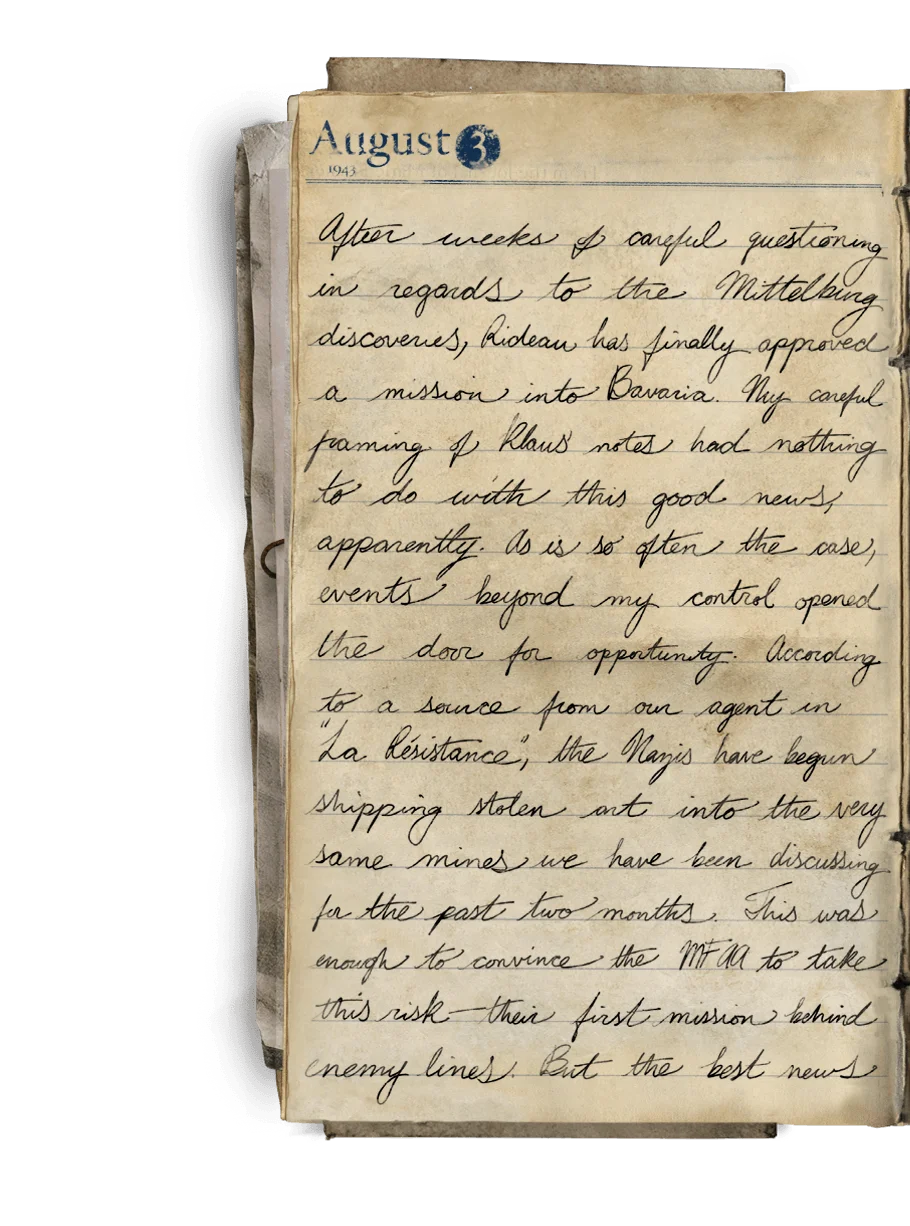 August 3
1943
After weeks of careful questioning
in regards to the Mittelburg
discoveries, Rideau has finally approved
a mission into Bavaria. My careful
framing of Klaus' notes had nothing
to do with this good news,
apparently. As is so often the case,
events beyond my control opened
the door for opportunity. According
to a source from our agent in
"La Résistance", the Nazis have begun
shipping stolen art into the very
same mines we have been discussing
for the past two months. This was
enough to convince the MFAA to take
this risk—their first mission behind
enemy lines. But the best news